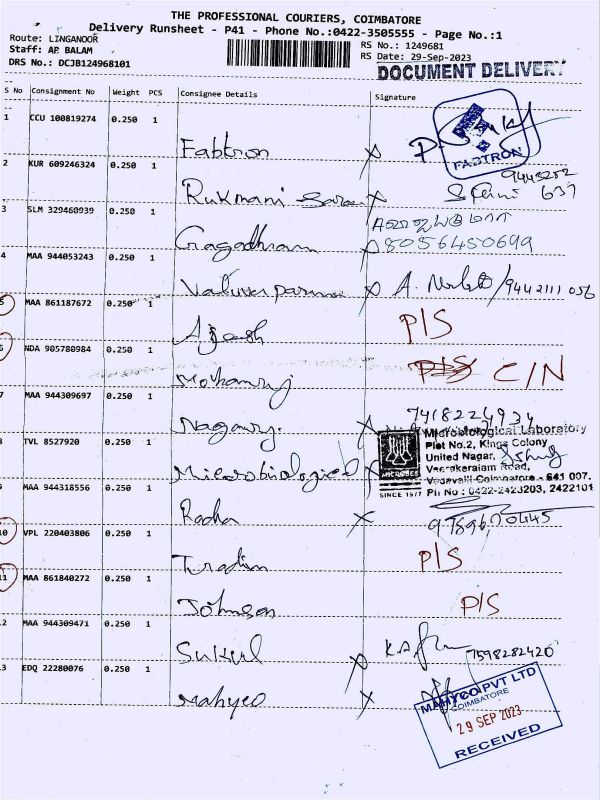 THE PROFESSIONAL COURIERS, COIMBATORE
Delivery Runsheet - P41 - Phone No.:0422-3505555 - Page No.:1
Route: LINGANOOR
RS No.: 1249681
Staff: AP BALAM
RS Date: 29-Sep-2023
DRS No.: DCJB124968101
DOCUMENT DELIVERY
S No Consignment No Weight PCS Consignee Details Signature
1 CCU 100819274 0.250 1
Fabtron x
FABTRON
2 KUR 609246324 0.250 1
Rukmani x
637
3 SLM 329460939 0.250 1
x 8056450699
4 MAA 944053243 0.250 1
x A. /9442111056
5 MAA 861187672 0.250 1
P/S
6 NDA 905780984 0.250 1
Mohanraj P/S C/N
7 MAA 944309697 0.250 1
Nagaraj x 7418224934
8 TVL 8527920 0.250 1
Microbiological x
Microbiological Laboratory
Plot No.2, Kings Colony
United Nagar,
Veerakeralam Road,
Vadavalli Coimbatore - 641 007.
Ph No : 0422-2423203, 2422101
MICROBES
SINCE 1977
9 MAA 944318556 0.250 1
Radha x
10 VPL 220403806 0.250 1
P/S
11 MAA 861840272 0.250 1
Johnson P/S
12 MAA 944309471 0.250 1
Sukul x 7598282420
13 EDQ 22280076 0.250 1
Mahyco x
MAHYCO PVT LTD
COIMBATORE
29 SEP 2023
RECEIVED